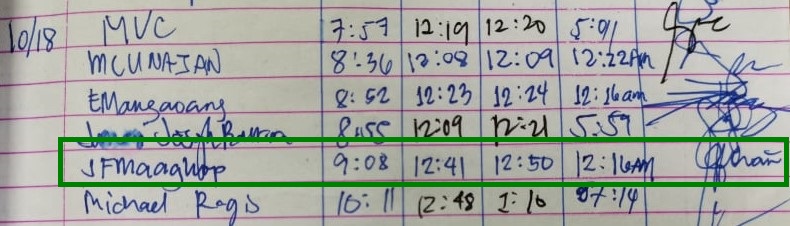 10/18 MVC 7:57 12:19 12:20 5:01
MCUNAIAN 8:36 12:08 12:09 12:22Am
EMangaoang 8:52 12:23 12:24 12:16am
8:55 12:09 12:21 5:59
JFMaaghop 9:08 12:41 12:50 12:16AM
Michael Regis 10:11 12:48 1:10 07:14